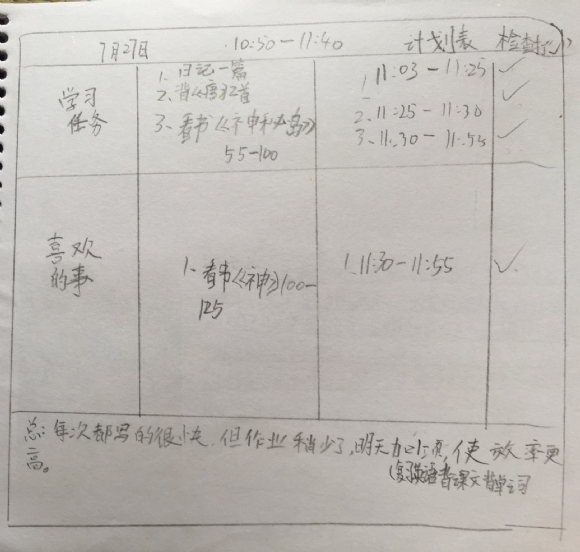 7月27日 10:50—11:40 计划表 检查打√
学习任务
1. 日记一篇
2. 背《唐》2首
3. 看书《神秘岛》
55-100
1. 11:03—11:25 ✓
2. 11:25—11:30 ✓
3. 11:30—11:55 ✓
喜欢的事
1. 看书《神》100—
125
1. 11:30—11:55 ✓
总: 每次都写的很快,但作业稍少了,明天加 项,使放率更
高。
(复习英语背课文背单词